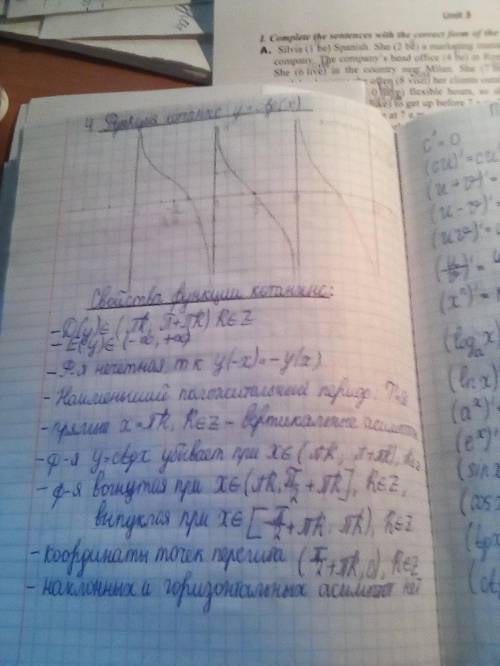 Unit 3
I. Complete the sentences with the correct form of the
A. Silvia (1 be) Spanish. She (2 be) a marketing
company. The company's head office (4 be) in
She (6 live) in the country near Milan. She (7
flexible hours, so
to get up before 7
4. Функция котангенс y = ctg(x)
Свойства функции котангенс:
- D(y) ∈ (πk, π+πk) k∈Z
- E(y) ∈ (-∞, +∞)
- Ф-я нечетная т к y(-x) = -y(x)
- Наименьший положительный период: T=π
- прямые x = πk, k∈Z - вертикальные асимпт
- ф-я y=ctgx убывает при x∈(πk, π+πk), k∈Z
- ф-я вогнутая при x∈(πk, π/2 + πk], k∈Z,
выпуклая при x∈[-π/2 + πk, πk), k∈Z
- координаты точек перегиба (π/2 + πk, 0), k∈Z
- наклонных и горизонтальных асимптот нет
c' = 0
(cu)' = cu'
(u+v)' =
(u-v)' =
(uv)' =
(u/v)' =
(xⁿ)' =
(logₐx)
(ln x)'
(aˣ)' =
(eˣ)' =
(sin x
(cos x
(tgx
(ct